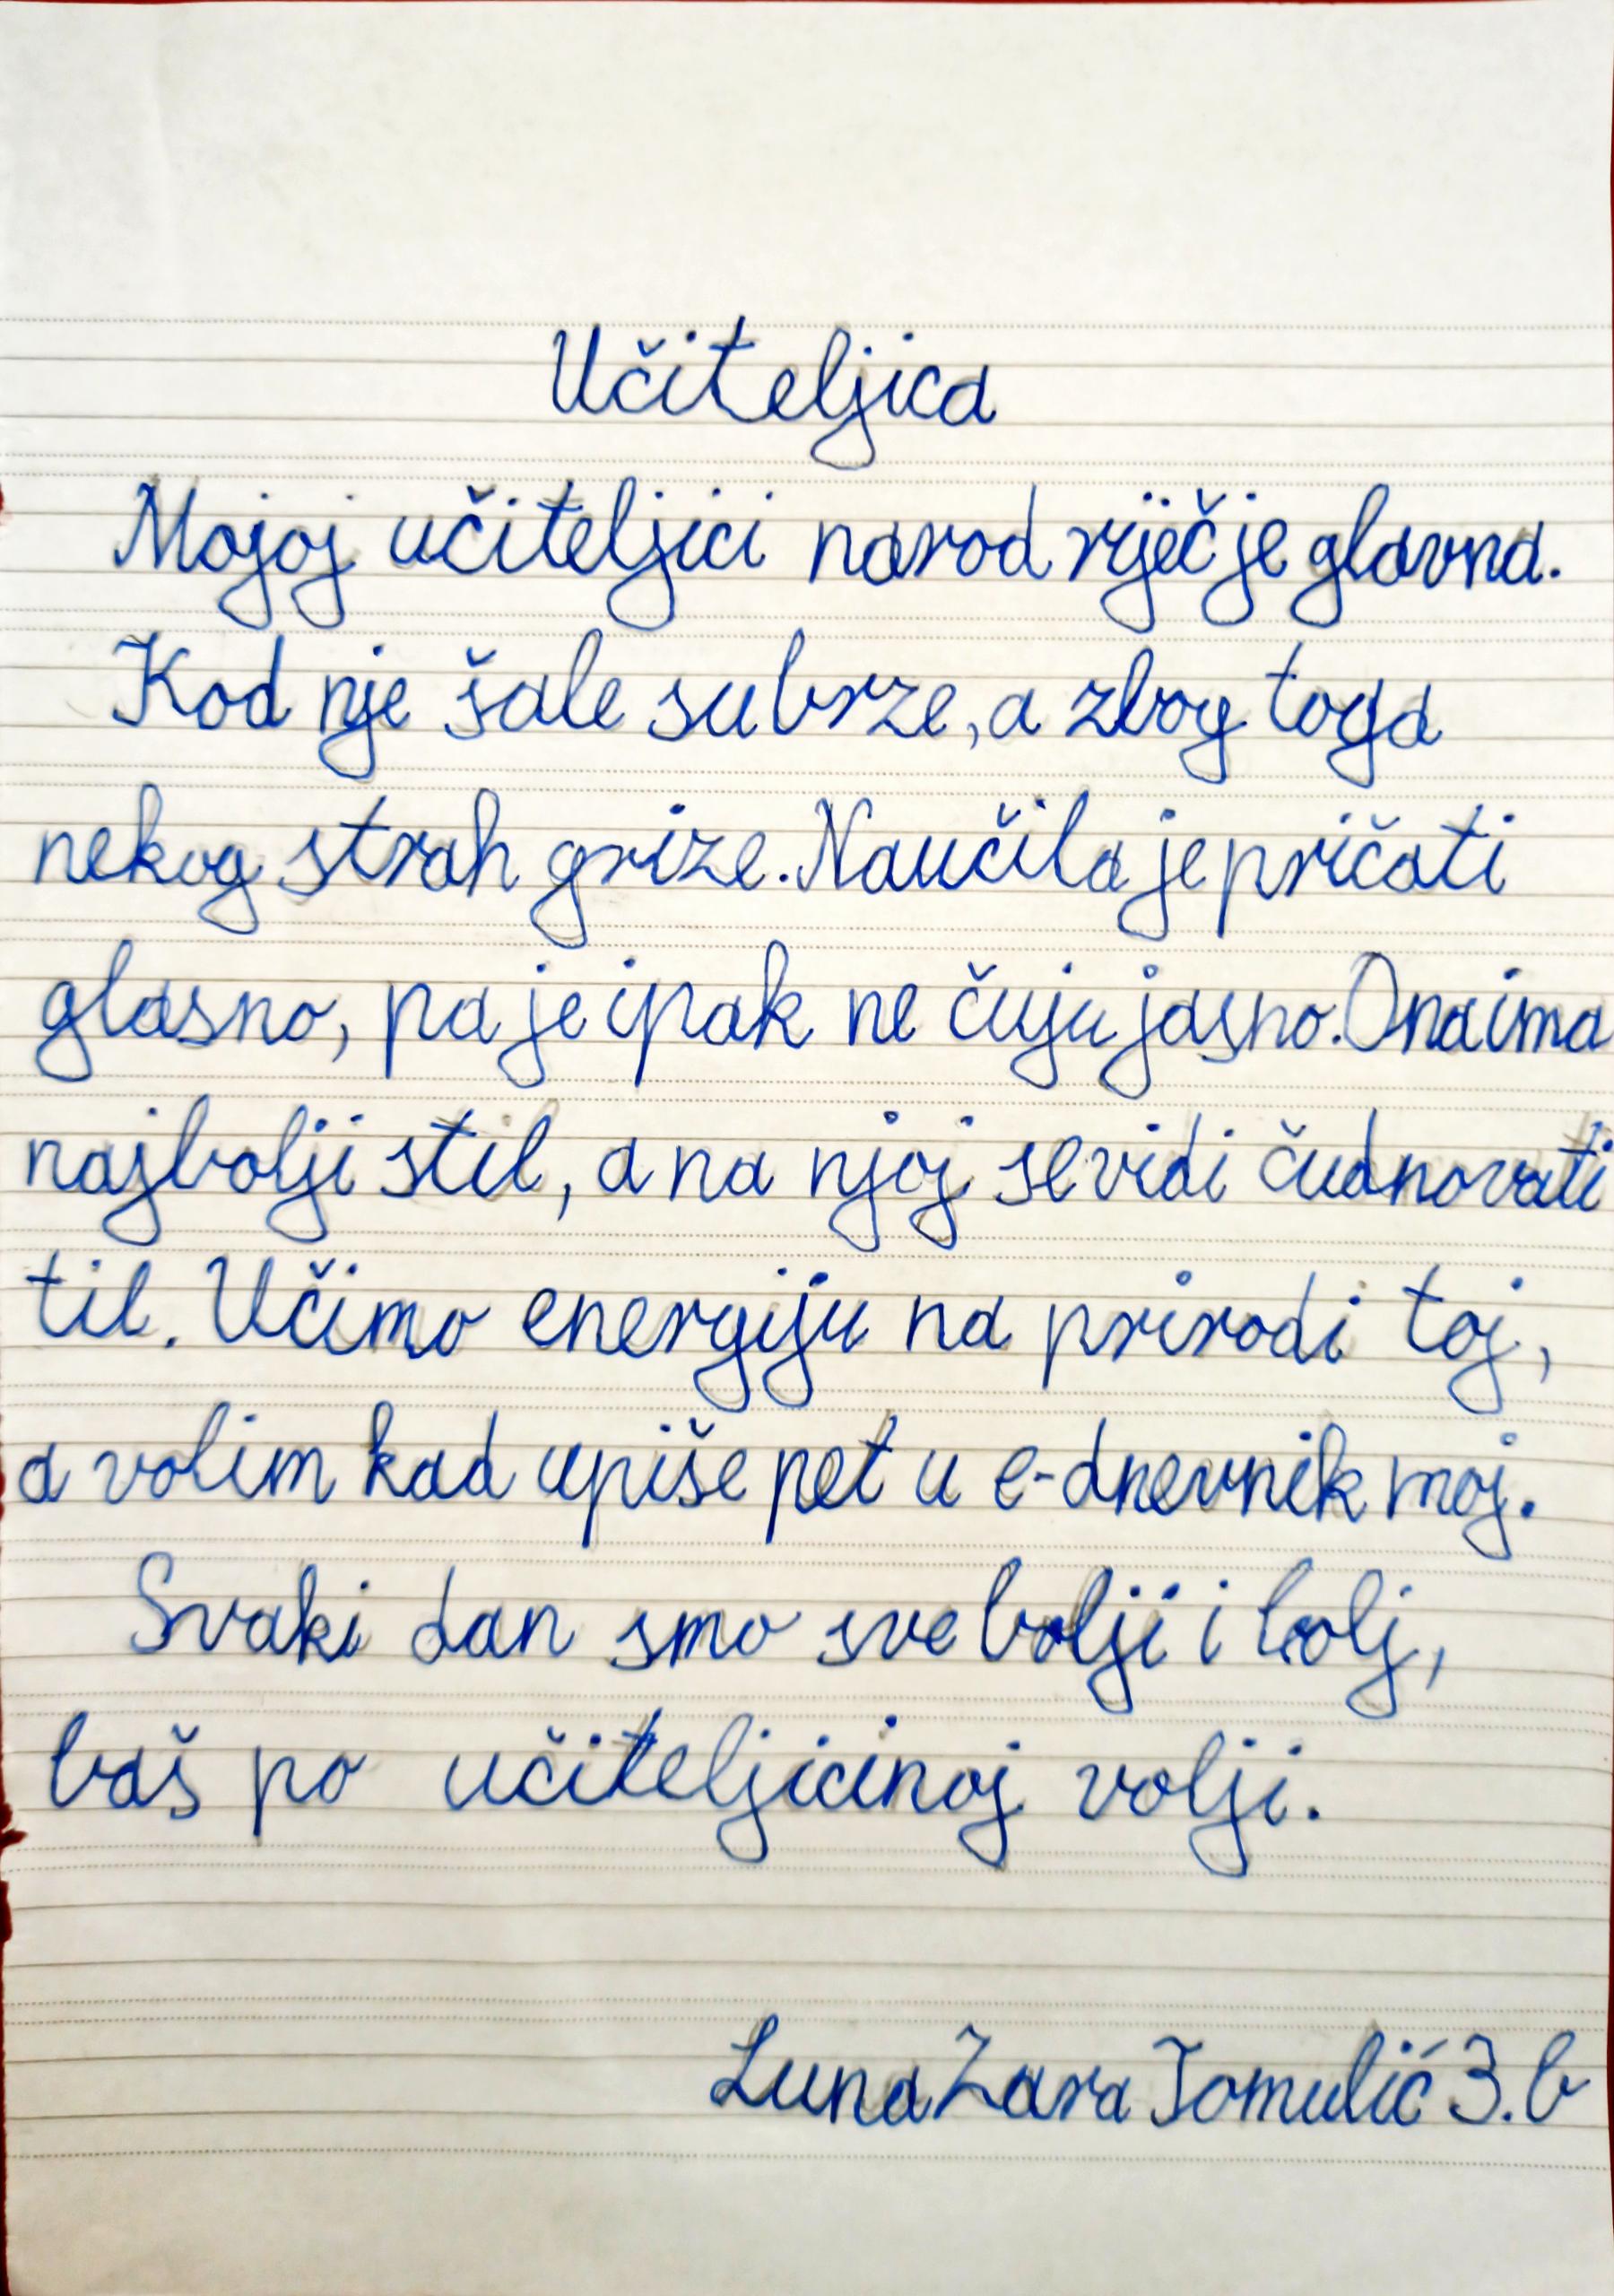 Učiteljica
Mojoj učiteljici narod riječ je glavna.
Kod nje šale su brze, a zbog toga
nekog strah grize. Naučila je pričati
glasno, pa je ipak ne čuju jasno. Ona ima
najbolji stil, a na njoj se vidi čudnovati
til. Učimo energiju na prirodi toj,
a volim kad upiše pet u e-dnevnik moj.
Svaki dan smo sve bolji i bolj,
baš po učiteljicinoj volji.
Luna Zara Tomulić 3.b